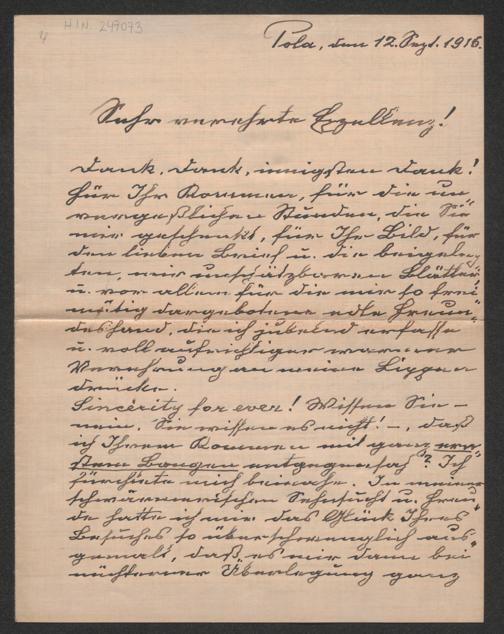 4
H.I.N. 249073
Pola, den 12. Sept. 1916.
Sehr verehrte Exzellenz!
Dank, Dank, innigsten Dank!
Für Ihr Kommen, für die un-
vergeßlichen Stunden, die Sie
mir geschenkt, für Ihr Bild, für
den lieben Brief u. die beigeleg-
ten, mir unschätzbaren Blätter
u. vor allem für die mir so frei-
mütig dargebotene edle Freun-
deshand, die ich jubelnd erfasse
u. voll aufrichtiger warmer
Verehrung an meine Lippen
drücke.
Sincerity for ever! Wissen Sie –
nein, Sie wissen es nicht! –, daß
ich Ihrem Kommen mit ganz ern-
stem Bangen entgegensah? Ich
fürchtete mich beinahe. In meiner
schwärmerischen Sehnsucht u. Freu-
de hatte ich mir das Glück Ihres
Besuches so überschwenglich aus-
gemalt, daß es mir dann bei
nüchterner Überlegung ganz